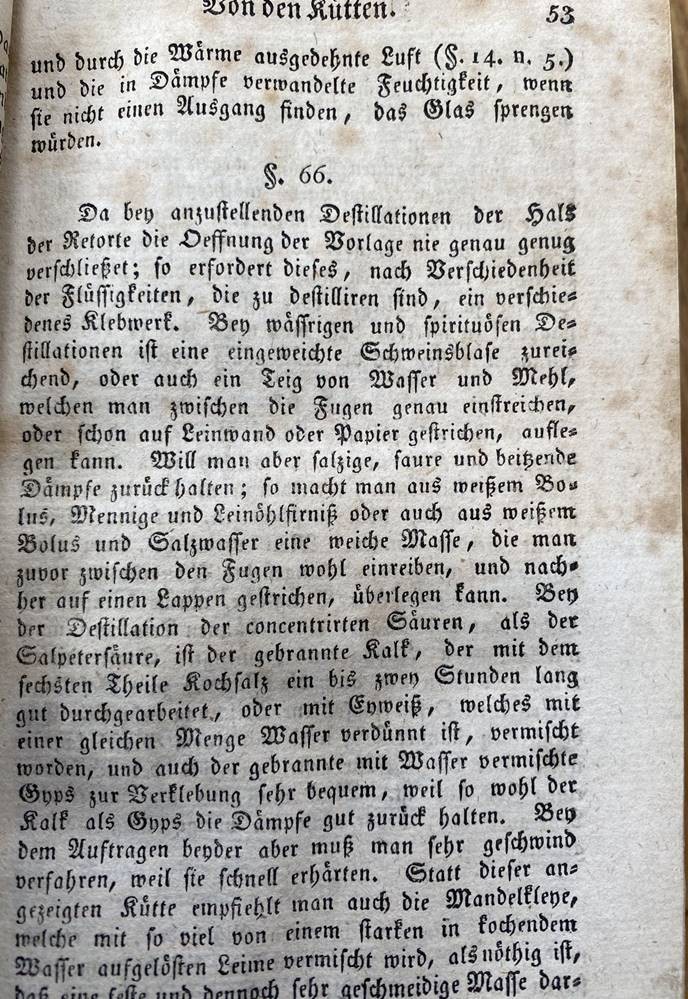 Von den Kütten. 53
und durch die Wärme ausgedehnte Luft (§. 14. n. 5.)
und die in Dämpfe verwandelte Feuchtigkeit, wenn
sie nicht einen Ausgang finden, das Glas sprengen
würden.
§. 66.
Da bey anzustellenden Destillationen der Hals
der Retorte die Oeffnung der Vorlage nie genau genug
verschließet; so erfordert dieses, nach Verschiedenheit
der Flüssigkeiten, die zu destilliren sind, ein verschie-
denes Klebwerk. Bey wässrigen und spirituösen De-
stillationen ist eine eingeweichte Schweinsblase zurei-
chend, oder auch ein Teig von Wasser und Mehl,
welchen man zwischen die Fugen genau einstreichen,
oder schon auf Leinwand oder Papier gestrichen, aufle-
gen kann. Will man aber salzige, saure und beitzende
Dämpfe zurück halten; so macht man aus weißem Bo-
lus, Mennige und Leinöhlfirniß oder auch aus weißem
Bolus und Salzwasser eine weiche Masse, die man
zuvor zwischen den Fugen wohl einreiben, und nach-
her auf einen Lappen gestrichen, überlegen kann. Bey
der Destillation der concentrirten Säuren, als der
Salpetersäure, ist der gebrannte Kalk, der mit dem
sechsten Theile Kochsalz ein bis zwey Stunden lang
gut durchgearbeitet, oder mit Eyweiß, welches mit
einer gleichen Menge Wasser verdünnt ist, vermischt
worden, und auch der gebrannte mit Wasser vermischte
Gyps zur Verklebung sehr bequem, weil so wohl der
Kalk als Gyps die Dämpfe gut zurück halten. Bey
dem Auftragen beyder aber muß man sehr geschwind
verfahren, weil sie schnell erhärten. Statt dieser an-
gezeigten Kütte empfiehlt man auch die Mandelkleye,
welche mit so viel von einem starken in kochendem
Wasser aufgelösten Leime vermischt wird, als nöthig ist,
daß eine feste und dennoch sehr geschmeidige Masse dar-